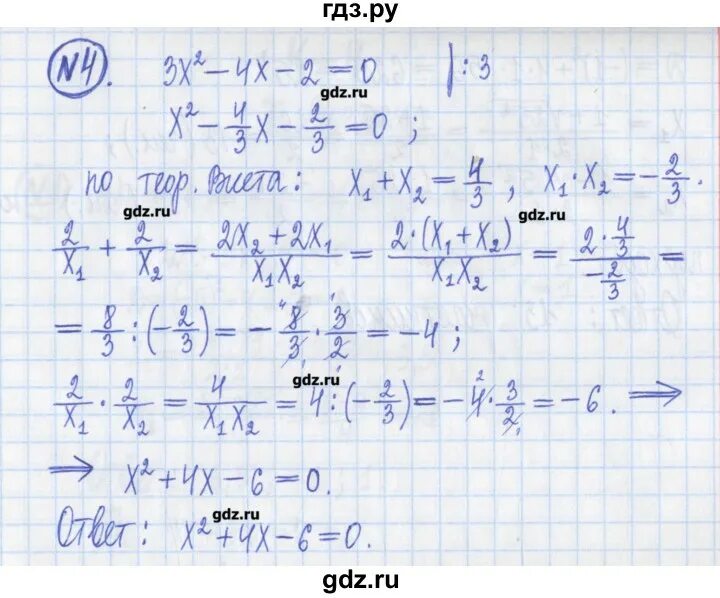 гдз.ру
№4. 3x² − 4x − 2 = 0 |:3
gdz.ru
x² − 4/3 x − 2/3 = 0 ;
по теор. Виета: x₁ + x₂ = 4/3 , x₁ · x₂ = − 2/3 .
gdz.ru gdz.ru
2/x₁ + 2/x₂ = (2x₂ + 2x₁)/(x₁x₂) = (2·(x₁ + x₂))/(x₁x₂) = (2 · 4/3)/(− 2/3) =
= 8/3 : (− 2/3) = − 8/3 · 3/2 = −4 ;
gdz.ru
2/x₁ · 2/x₂ = 4/(x₁x₂) = 4 : (− 2/3) = − 4 · 3/2 = −6 . ⟹
⟹ x² + 4x − 6 = 0.
gdz.ru
Ответ: x² + 4x − 6 = 0.
gdz.ru